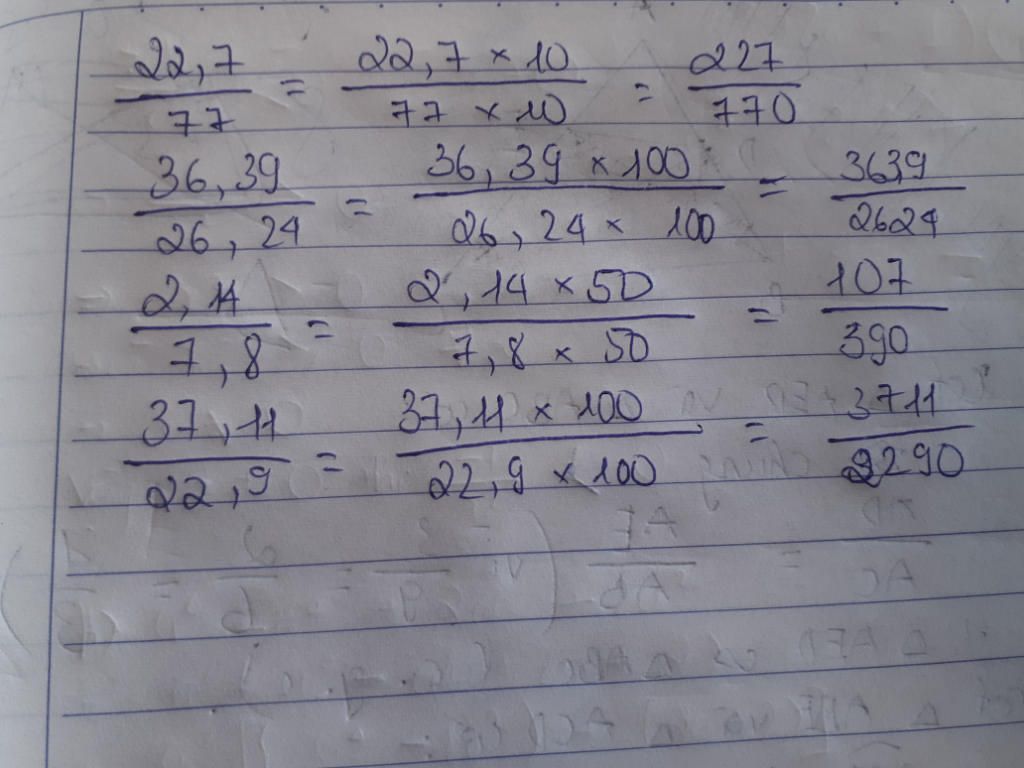 22,7/77 = 22,7 × 10/77 × 10 = 227/770
36,39/26,24 = 36,39 × 100/26,24 × 100 = 3639/2624
2,14/7,8 = 2,14 × 50/7,8 × 50 = 107/390
37,11/22,9 = 37,11 × 100/22,9 × 100 = 3711/2290